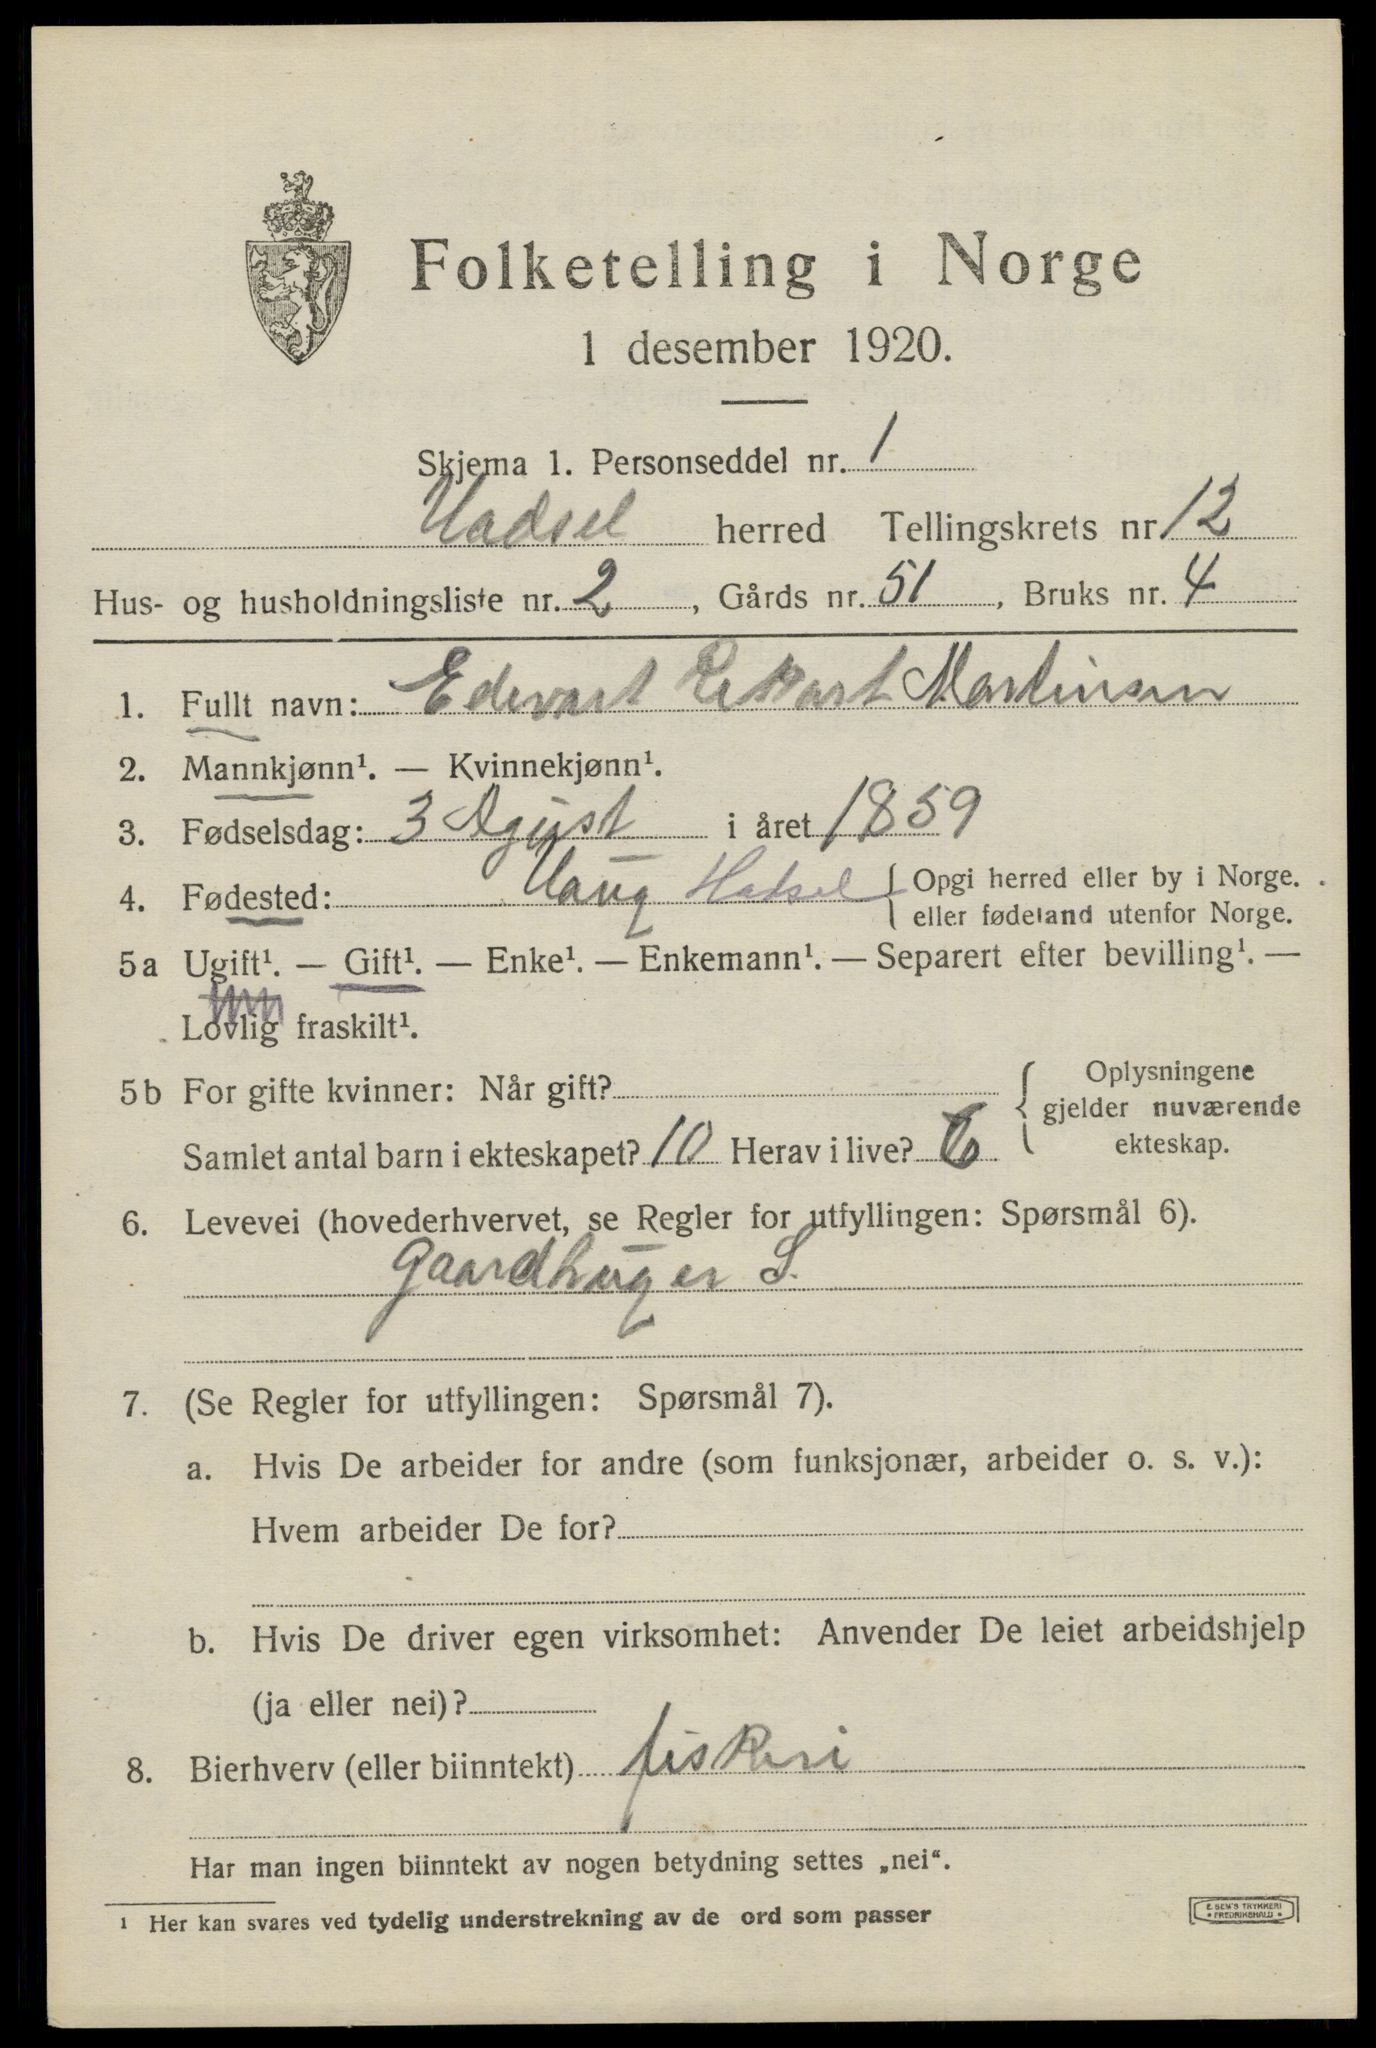 Folketelling i Norge
1 desember 1920.
Skjema 1. Personseddel nr. 1
Hadsel herred Tellingskrets nr 12
Hus- og husholdningsliste nr. 2, Gårds nr. 51, Bruks nr. 4
1. Fullt navn: Edevart Martinsen
2. Mannkjønn¹. — Kvinnekjønn¹.
3. Fødselsdag: 3 Agust i året 1859
4. Fødested: Haug Hadsel { Opgi herred eller by i Norge.
eller fødeland utenfor Norge.
5a Ugift¹. — Gift¹. — Enke¹. — Enkemann¹. — Separert efter bevilling¹. —
Lovlig fraskilt¹.
5b For gifte kvinner: Når gift? { Oplysningene
gjelder nuværende
ekteskap.
Samlet antal barn i ekteskapet? 10 Herav i live? 6
6. Levevei (hovederhvervet, se Regler for utfyllingen: Spørsmål 6).
Gaardbruger S.
7. (Se Regler for utfyllingen: Spørsmål 7).
a. Hvis De arbeider for andre (som funksjonær, arbeider o. s. v.):
Hvem arbeider De for?
b. Hvis De driver egen virksomhet: Anvender De leiet arbeidshjelp
(ja eller nei)?
8. Bierhverv (eller biinntekt) fiskeri
Har man ingen biinntekt av nogen betydning settes „nei“.
¹ Her kan svares ved tydelig understrekning av de ord som passer
E. SEM'S TRYKKERI
* FREDRIKSHALD *